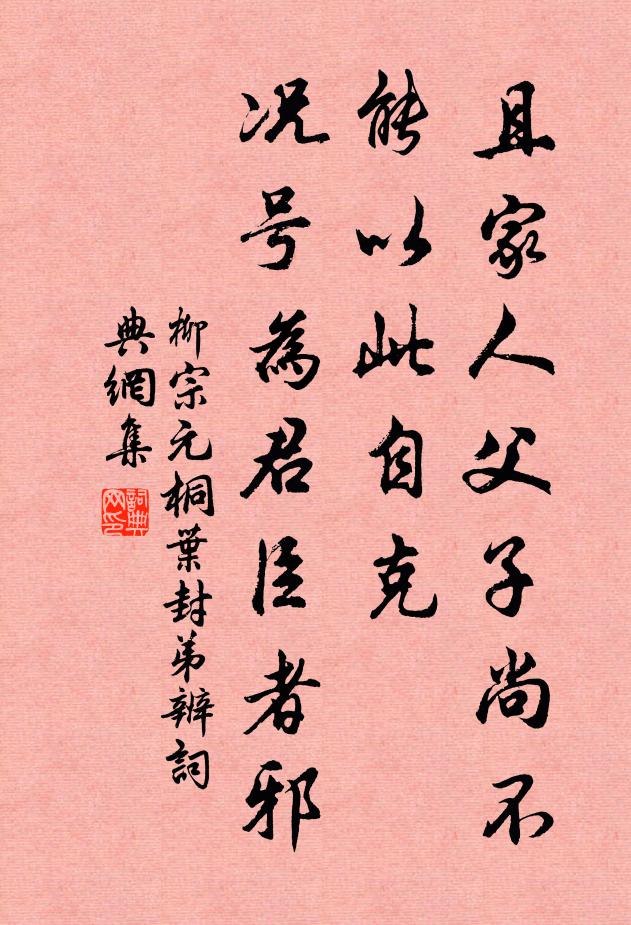 且家人父子尚不
能以此自克
况号為君臣者邪
柳宗元桐葉封弟辨詞
典網集
詞典网印